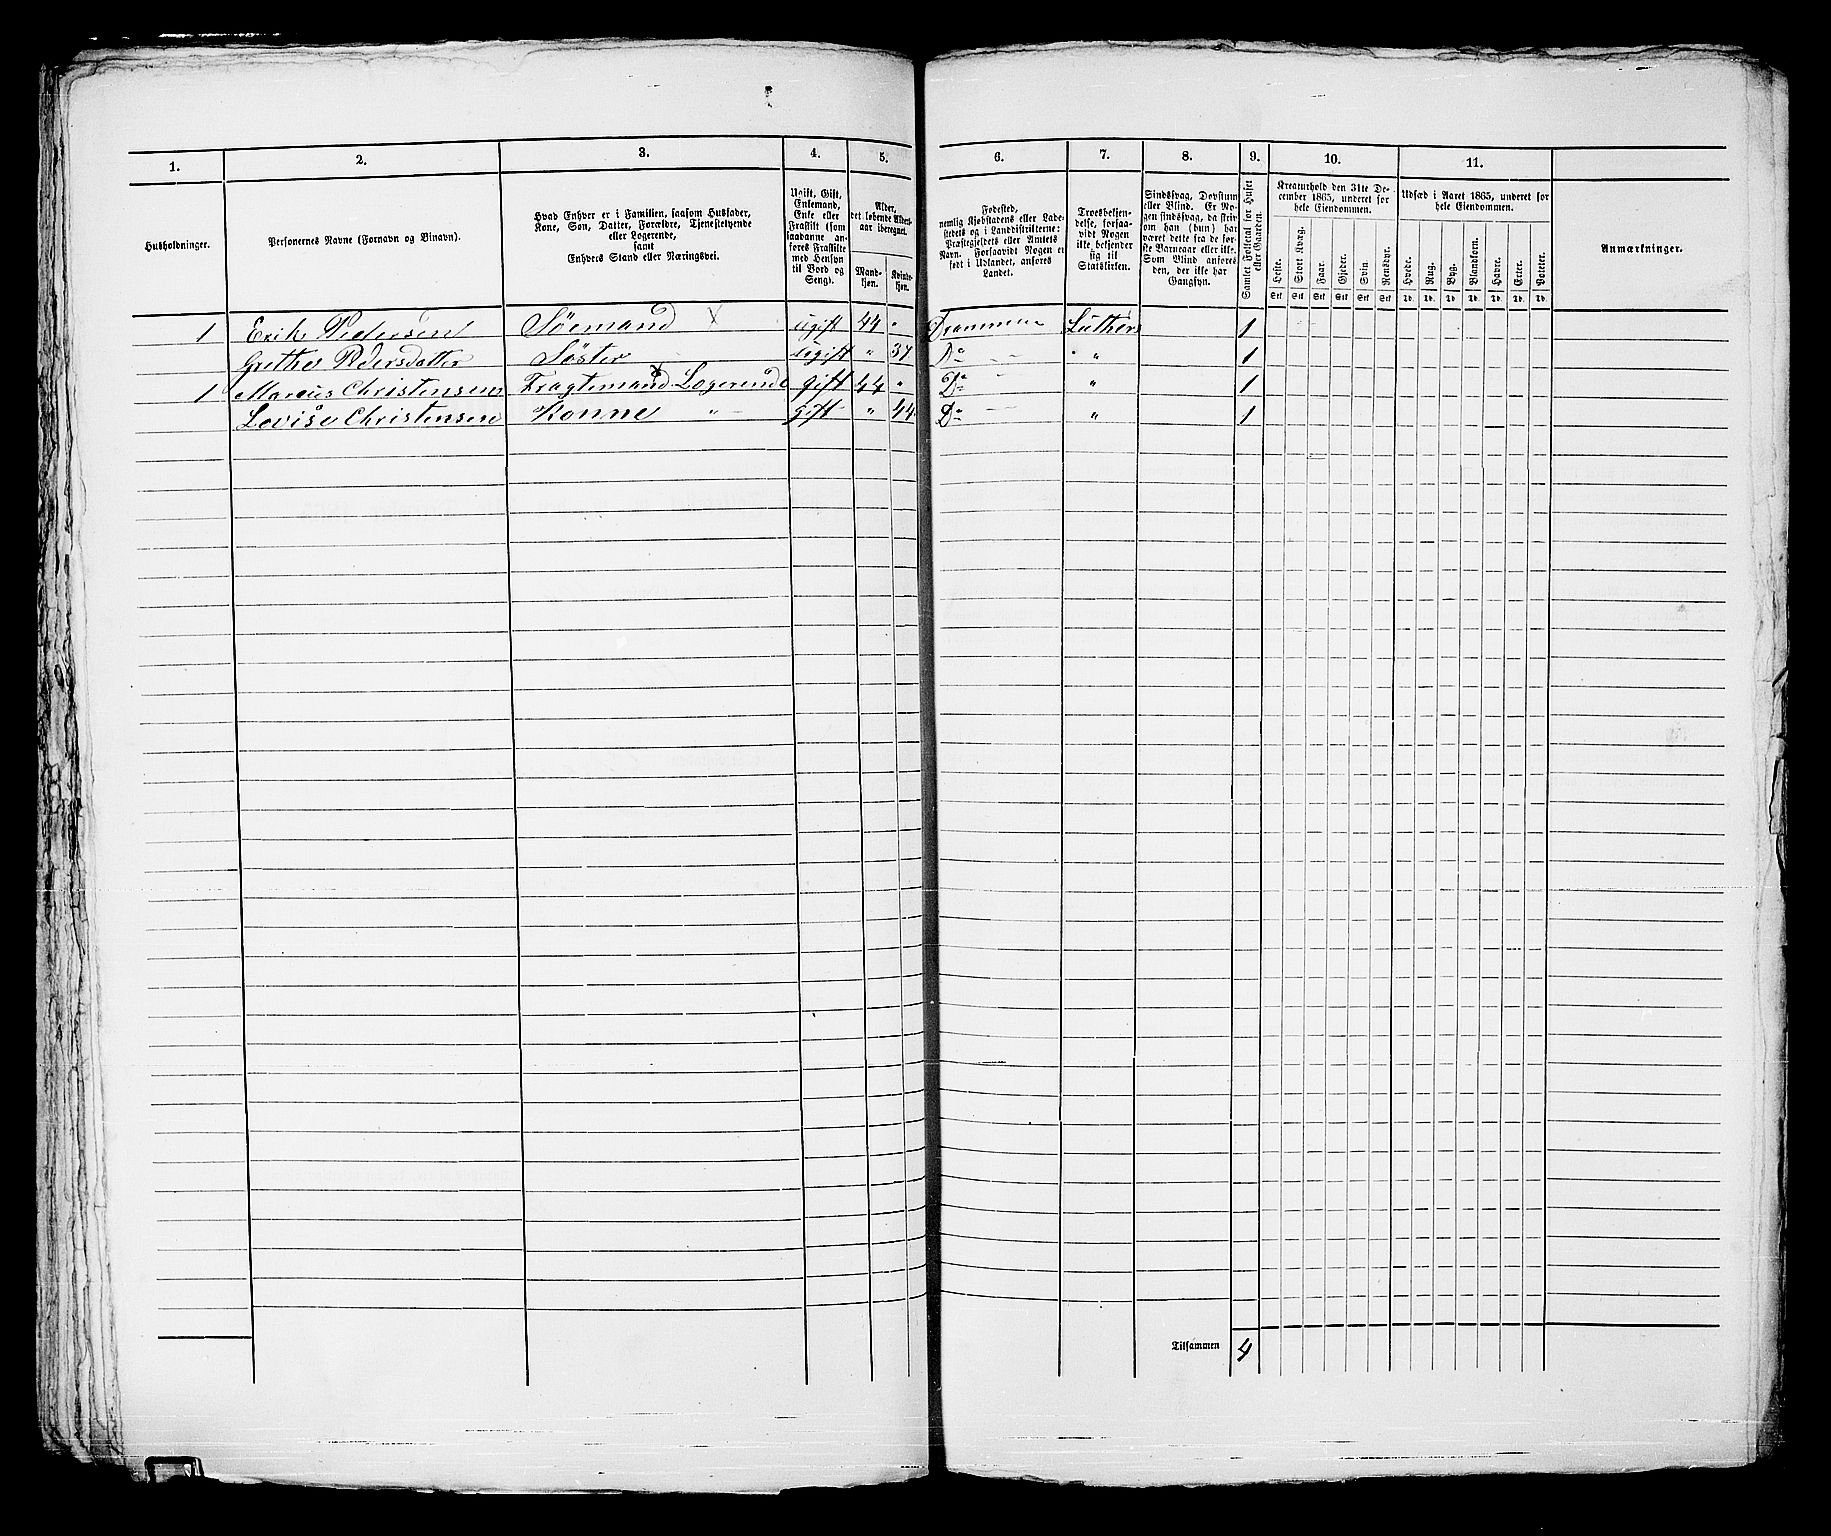 1. 2. 3. 4. 5. 6. 7. 8. 9. 10. 11.
Husholdninger.
Personernes Navne (Fornavn og Binavn).
Hvad Enhver er i Familien, saasom Husfader,
Kone, Søn, Datter, Forældre, Tjenestetyende
eller Logerende,
samt
Enhvers Stand eller Næringsvei.
Ugift, Gift,
Enkemand,
Enke eller
Fraskilt (som
saadanne an-
føres Fraskilte
med Hensyn
til Bord og
Seng).
Alder,
det løbende Alders-
aar iberegnet.
Mand-
kjøn.
Kvinde-
kjøn.
Fødested,
nemlig Kjøbstadens eller Lade-
stedets og i Landdistrikterne:
Præstegjeldets eller Amtets
Navn. Forsaavidt Nogen er
født i Udlandet, anføres
Landet.
Troesbekjen-
delse, forsaa-
vidt Nogen
ikke bekjender
sig til
Statskirken.
Sindssvag, Døvstum
eller Blind. Er No-
gen sindssvag, da skriv
om han (hun) har
været dette fra de før-
ste Barneaar eller ikke.
Som Blind anføres
den, der ikke har
Gangsyn.
Samlet Folketal for Huset
eller Gaarden.
Kreaturhold den 31te De-
cember 1865, underet for
hele Eiendommen.
Heste. Stort Kvæg. Faar. Gjeder. Svin. Rensdyr.
Stk Stk Stk Stk Stk Stk
Udsæd i Aaret 1865, underet for
hele Eiendommen.
Hvede. Rug. Byg. Blandkorn. Havre. Erter. Poteter.
Td. Td. Td. Td. Td. Td. Td.
Anmærkninger.
1 Erik Pedersen Söemand × ugift 44 " Drammen Luthers 1
Grethe Pedersdatter Søster ugift " 37 Do " 1
1 Marcus Christensen Fragtemand × Logerende gift 44 " Do " 1
Lovise Christensen Konne " gift " 44 Do " 1
Tilsammen 4